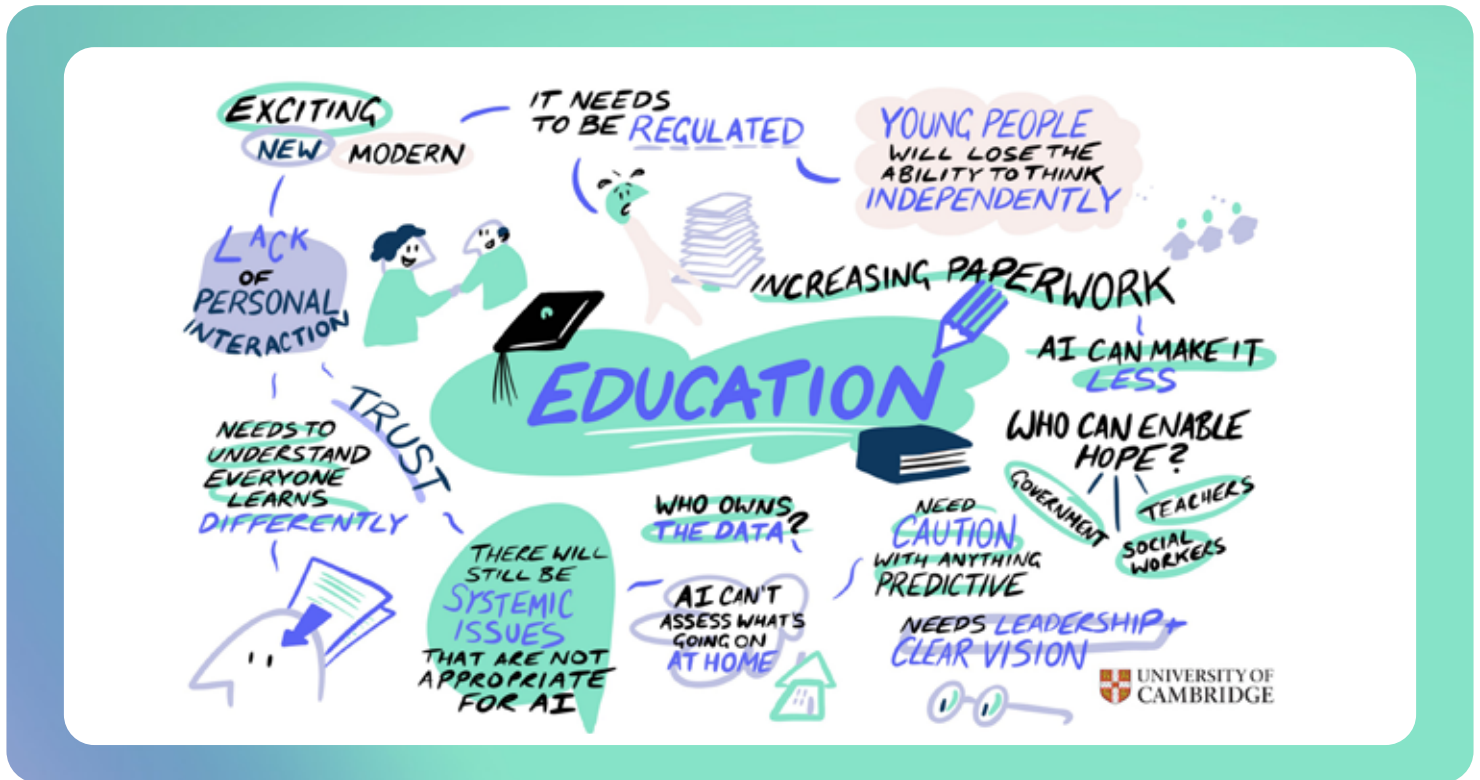 EXCITING
NEW MODERN
IT NEEDS
TO BE REGULATED
YOUNG PEOPLE
WILL LOSE THE
ABILITY TO THINK
INDEPENDENTLY
LACK
OF
PERSONAL
INTERACTION
INCREASING PAPERWORK
AI CAN MAKE IT
LESS
EDUCATION
TRUST
NEEDS TO
UNDERSTAND
EVERYONE
LEARNS
DIFFERENTLY
WHO CAN ENABLE
HOPE?
GOVERNMENT
TEACHERS
SOCIAL
WORKERS
WHO OWNS
THE DATA?
NEED
CAUTION
WITH ANYTHING
PREDICTIVE
THERE WILL
STILL BE
SYSTEMIC
ISSUES
THAT ARE NOT
APPROPRIATE
FOR AI
AI CAN'T
ASSESS WHAT'S
GOING ON
AT HOME
NEEDS LEADERSHIP +
CLEAR VISION
UNIVERSITY OF
CAMBRIDGE